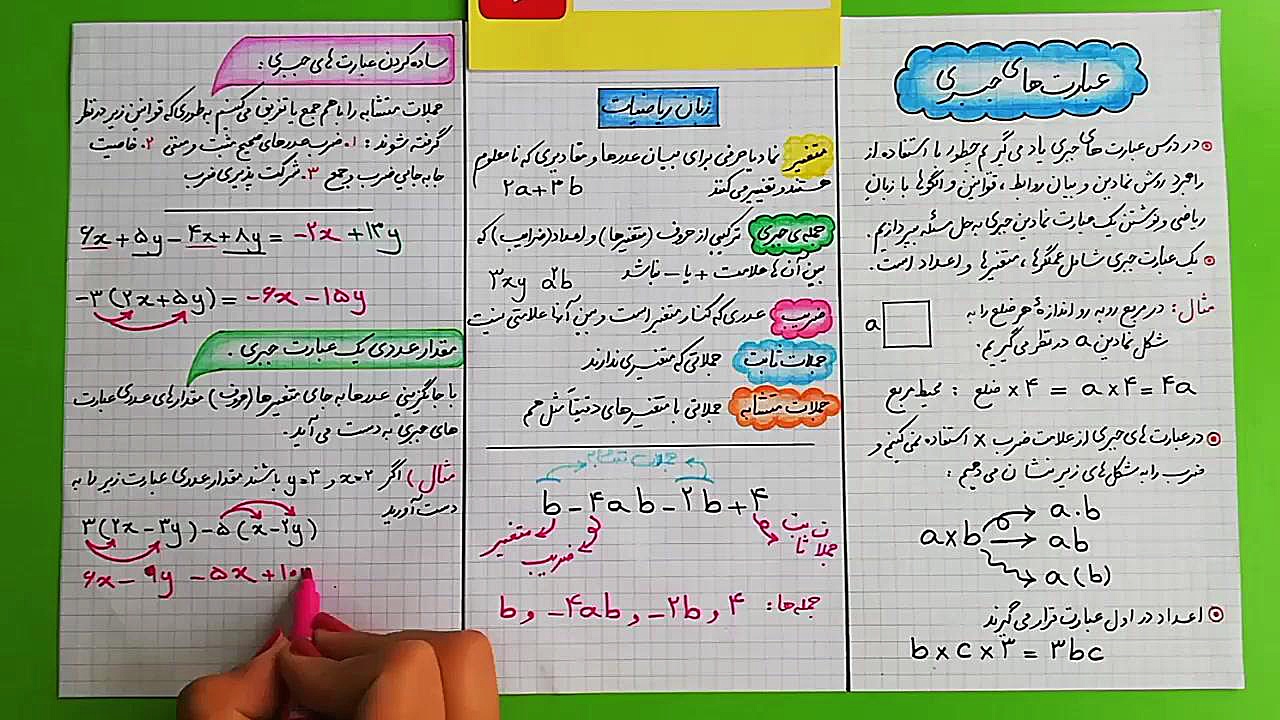 عبارت های جبری
در درس عبارت های جبری یاد می گیریم چطور با استفاده از
راهبرد روش نمادین و بیان روابط، قوانین و الگوها با زبان
ریاضی و نوشتن یک عبارت نمادین جبری به حل مسئله بپردازیم.
یک عبارت جبری شامل عملگوها، متغیرها و اعداد است.
مثال: در مربع رو به رو اندازهٔ هر ضلع را به
شکل نمادین a در نظر می گیریم.
a
محیط مربع : ضلع × ۴ = a × ۴ = ۴a
در عبارت های جبری از علامت ضرب × استفاده نمی کنیم و
ضرب را به شکل های زیر نشان می دهیم:
a×b
a.b
ab
a(b)
اعداد در اول عبارت قرار می گیرند
b × c × ۳ = ۳bc
زبان ریاضیات
متغیر نماد یا حرفی برای بیان عددها و مقادیری که نامعلوم
هستند و تغییر می کنند ۲a+۳b
جمله ی جبری ترکیبی از حروف (متغیرها) و اعداد (ضرایب) که
بین آن ها علامت + یا - نباشد ۲b ۳xy
ضریب عددی که کنار متغیر است و بین آنها علامتی نیست
جملات ثابت جملاتی که متغیری ندارند
جملات متشابه جملاتی با متغیرهای دقیقاً مثل هم
جملات متشابه
b - ۴ab - ۲b + ۴
متغیر
ضریب
جملات ثابت
جمله ها: b و -۴ab و -۲b و ۴
ساده کردن عبارت های جبری:
جملات متشابه را با هم جمع یا تفریق می کنیم به طوری که قوانین زیر در نظر
گرفته شوند: ۱. ضرب عددهای صحیح مثبت و منفی ۲. خاصیت
جابه جایی ضرب و جمع ۳. شرکت پذیری ضرب
۶x + ۵y - ۴x + ۸y = -۲x + ۱۳y
-۳(۲x+۵y) = -۶x - ۱۵y
مقدار عددی یک عبارت جبری.
با جایگزینی عددها به جای متغیرها (حروف) مقدارهای عددی عبارت
های جبری به دست می آید.
مثال) اگر x=۲ و y=۳ باشند مقدار عددی عبارت زیر را به
دست آورید
۳(۲x-۳y)-۵(x-۲y)
۶x - ۹y - ۵x + ۱۰